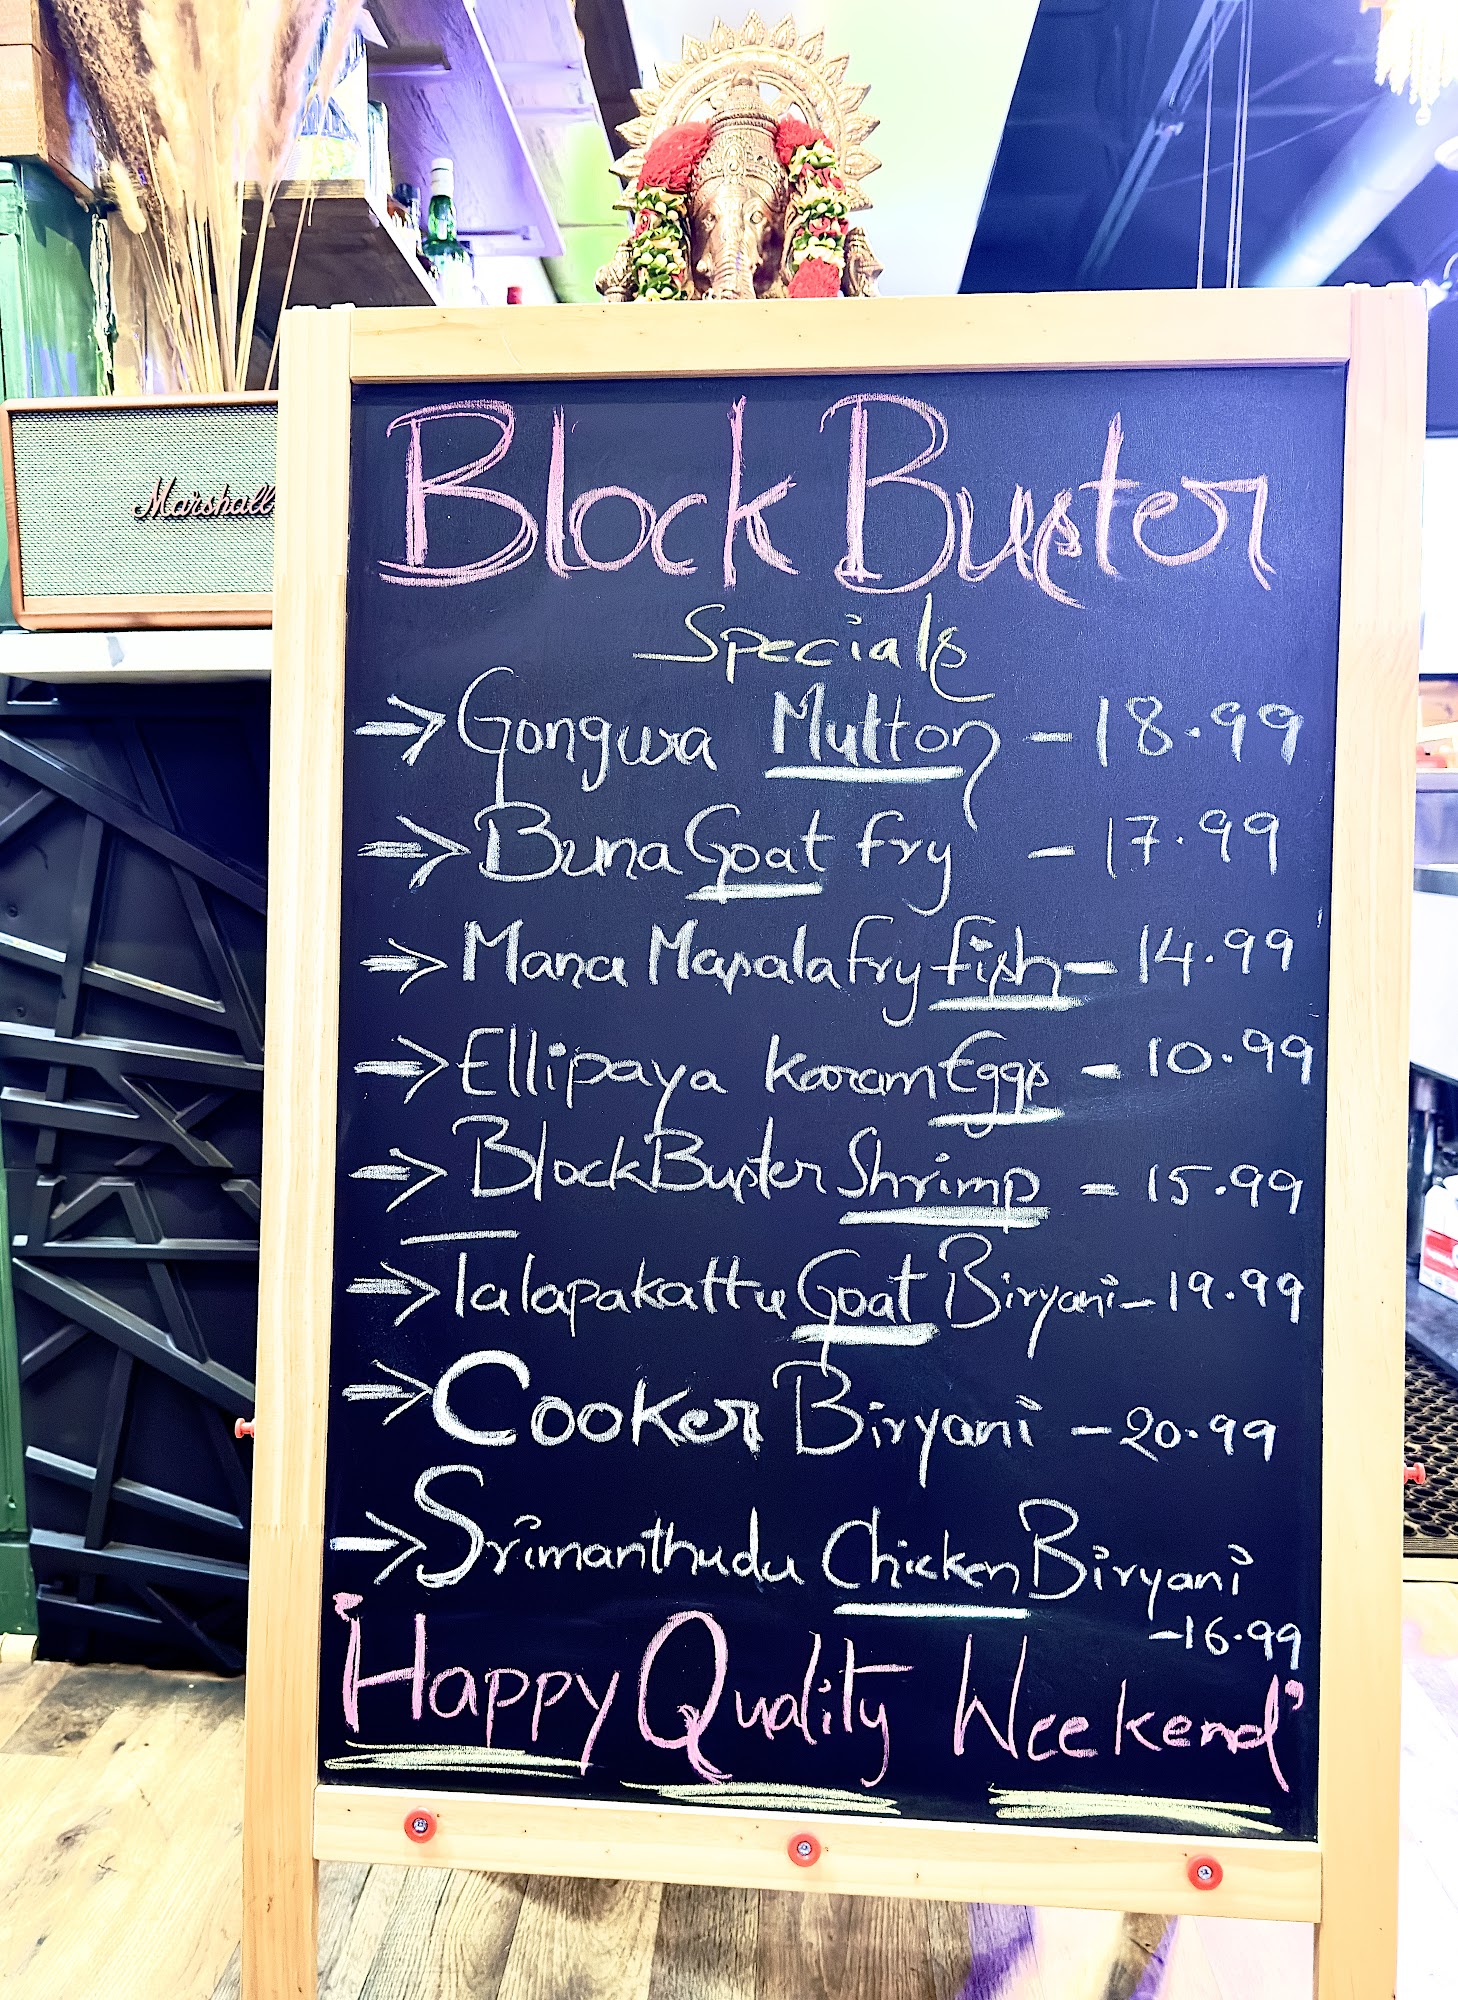 Marshall
Block Buster
Specials
→ Gongura Mutton - 18.99
→ Buna Goat fry - 17.99
→ Mana Masala fry fish - 14.99
→ Ellipaya Karam Eggs - 10.99
→ BlockBuster Shrimp - 15.99
→ Talapakattu Goat Biryani - 19.99
→ Cooker Biryani - 20.99
→ Srimanthudu Chicken Biryani
- 16.99
"Happy Quality Weekend"